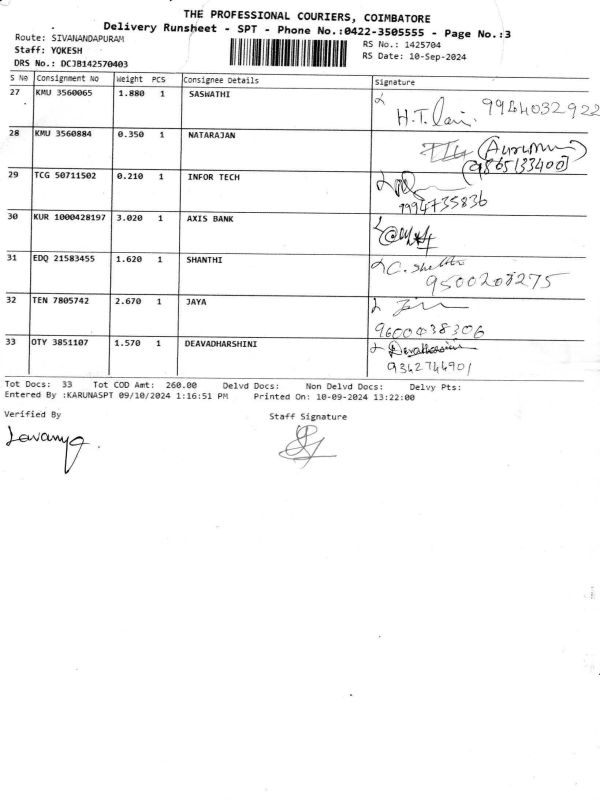 THE PROFESSIONAL COURIERS, COIMBATORE
Delivery Runsheet - SPT - Phone No.:0422-3505555 - Page No.:3
Route: SIVANANDAPURAM
RS No.: 1425704
Staff: YOKESH
RS Date: 10-Sep-2024
DRS No.: DCJB142570403
S No Consignment No Weight PCS Consignee Details Signature
27 KMU 3560065 1.880 1 SASWATHI
9944032922
28 KMU 3560884 0.350 1 NATARAJAN
9865133400
29 TCG 50711502 0.210 1 INFOR TECH
9994735836
30 KUR 1000428197 3.020 1 AXIS BANK
31 EDQ 21583455 1.620 1 SHANTHI
9500208275
32 TEN 7805742 2.670 1 JAYA
9600438306
33 OTY 3851107 1.570 1 DEAVADHARSHINI
Devadharsini
9342744901
Tot Docs: 33 Tot COD Amt: 260.00 Delvd Docs: Non Delvd Docs: Delvy Pts:
Entered By :KARUNASPT 09/10/2024 1:16:51 PM Printed On: 10-09-2024 13:22:00
Verified By Staff Signature
Lavanya